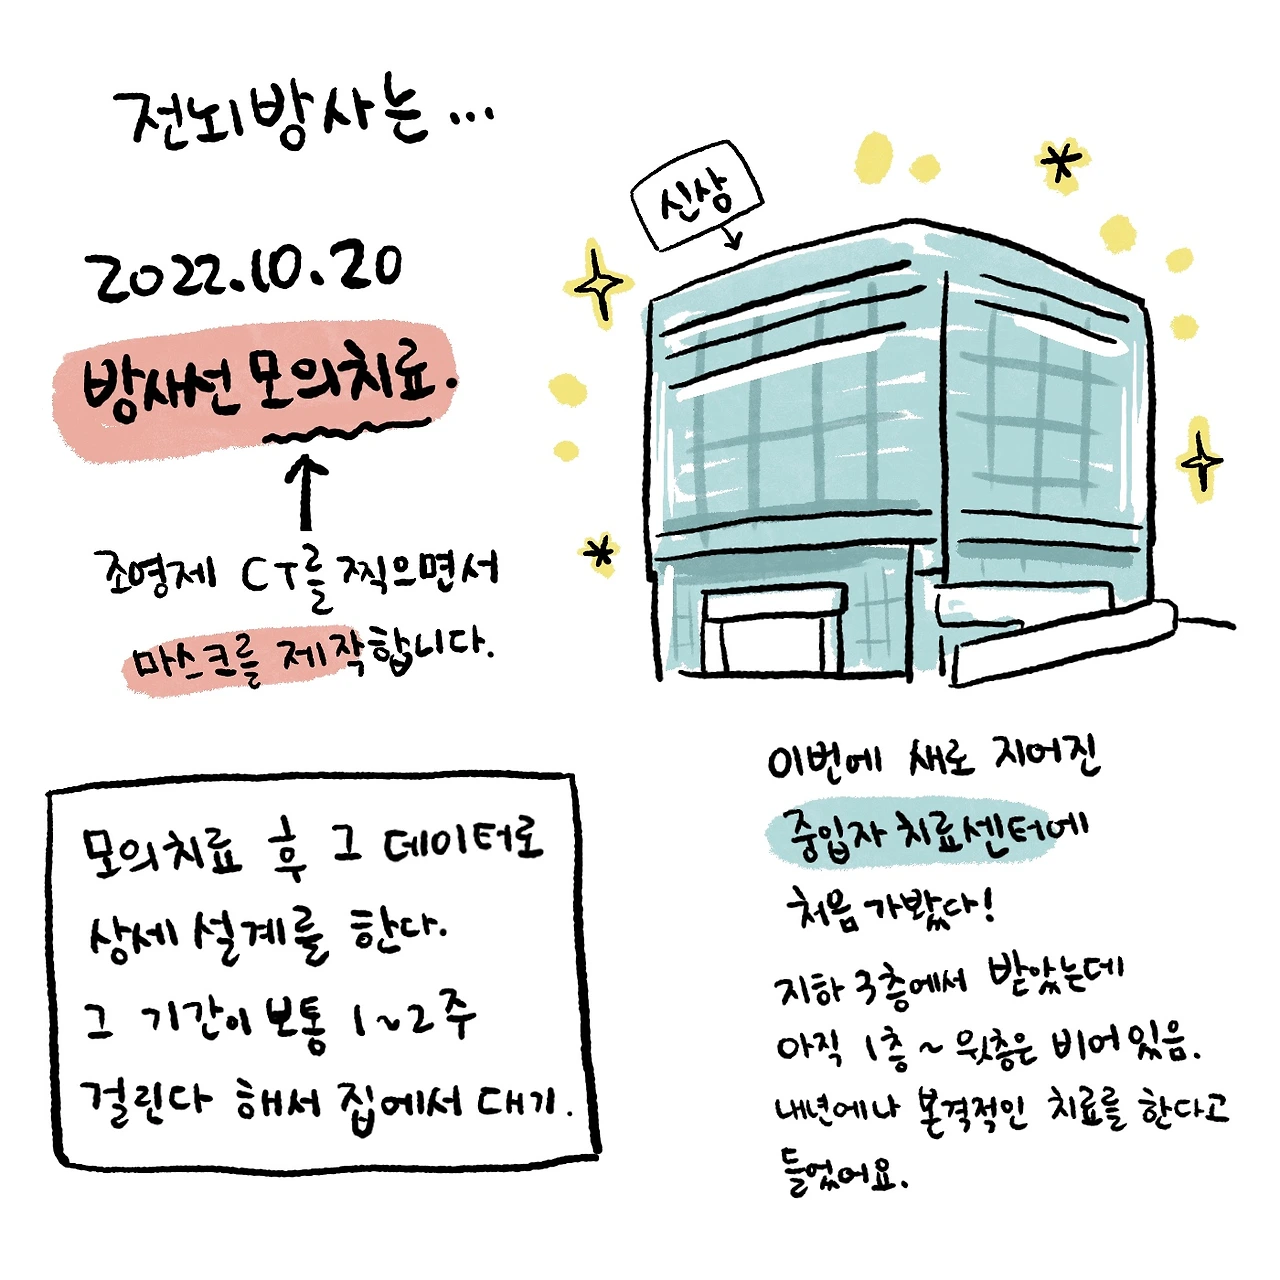 전뇌방사는...
2022.10.20
방사선 모의치료.
조영제 CT를 찍으면서
마스크를 제작합니다.
신상
모의치료 후 그 데이터로
상세 설계를 한다.
그 기간이 보통 1~2주
걸린다 해서 집에서 대기.
이번에 새로 지어진
중입자 치료센터에
처음 가봤다!
지하 3층에서 받았는데
아직 1층~윗층은 비어있음.
내년에나 본격적인 치료를 한다고
들었어요.